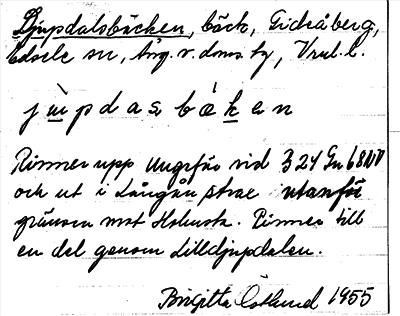 Djupdalsbäcken, bäck, Gideåberg,
Edsele sn, Ång. v. doms. tg,
j u p d a s b ɑ k e n
Rinner upp ungefär vid 324
och ut i Långån strax utanför
gränsen mot Holmsta. Rinner till
en del genom Lilldjupdalen.
Birgitta Östlund 1955